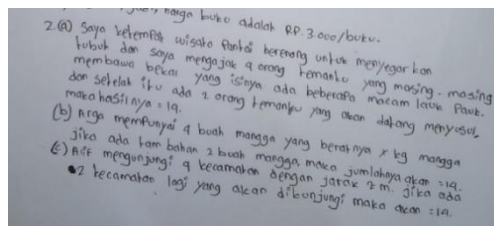 harga buku adalah RP. 3.000/buku.
2.(a) Saya ketempat wisata Pantai berenang untuk menyegarkan
tubuh dan saya mengajak 4 orang temanku yang masing-masing
membawa bekal yang isinya ada beberapa macam lauk Pauk.
dan setelah itu ada 2 orang temanku yang akan datang menyusul,
maka hasilnya = 14.
(b) Arga mempunyai 4 buah mangga yang beratnya x kg mangga
jika ada tambahan 2 buah mangga, maka jumlahnya akan = 14.
(c) Arif mengunjungi 4 kecamatan dengan jarak x m. jika ada
2 kecamatan lagi yang akan dikunjungi maka akan = 14.